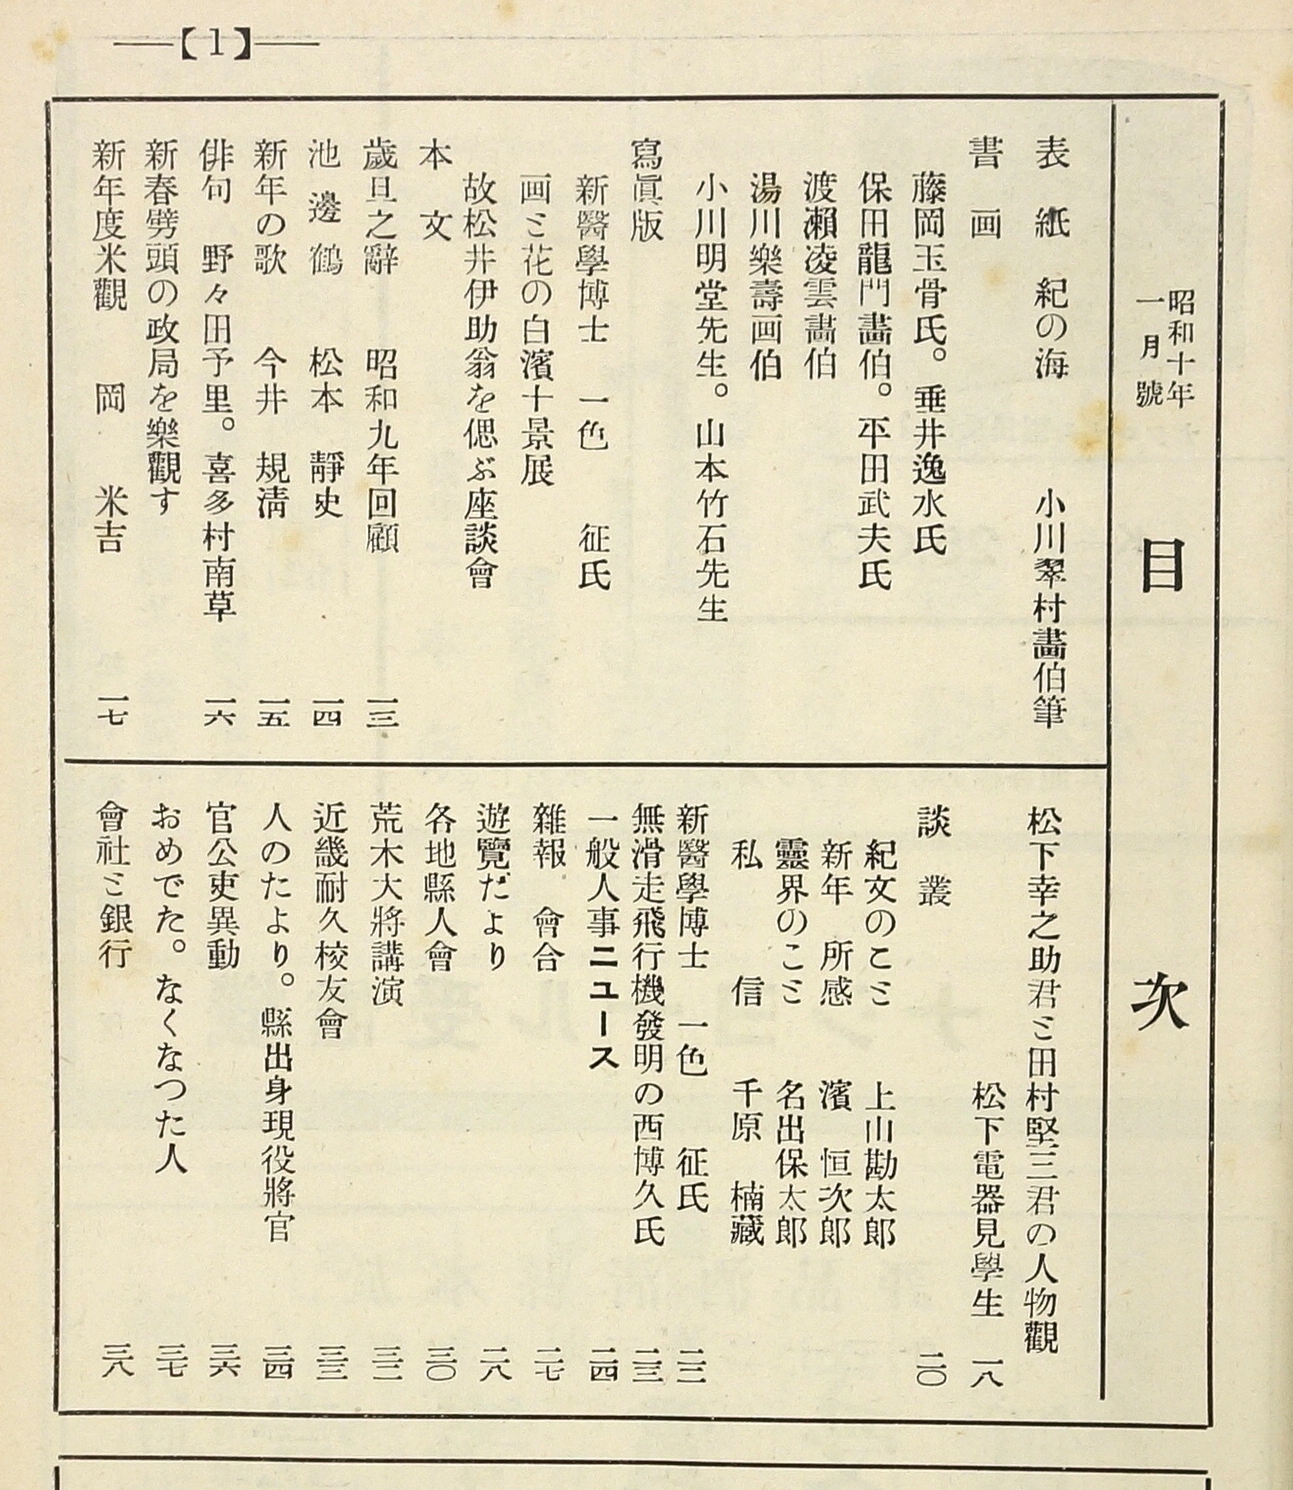 【1】
昭和十年
一月號
目次
表紙 紀の海 小川翠村畵伯筆
書画
藤岡玉骨氏。垂井逸水氏
保田龍門畵伯。平田武夫氏
渡瀨凌雲畵伯
湯川樂壽画伯
小川明堂先生。山本竹石先生
寫眞版
新醫學博士 一色 征氏
画ミ花の白濱十景展
故松井伊助翁を偲ぶ座談會
本文
歲旦之辭 昭和九年回顧 一三
池邊鶴 松本靜史 一四
新年の歌 今井規淸 一五
俳句 野々田予里。喜多村南草 一六
新春劈頭の政局を樂觀す
新年度米觀 岡 米吉 一七
松下幸之助君ミ田村堅三君の人物觀
松下電器見學生 一八
談叢 二〇
紀文のこミ 上山勘太郎
新年所感 濱 恒次郎
靈界のこミ 名出保太郎
私信 千原楠藏
新醫學博士 一色 征氏 二二
無滑走飛行機發明の西博久氏 二三
一般人事ニュース 二四
雜報 會合 二七
遊覽だより 二八
各地縣人會 三〇
荒木大將講演 三二
近畿耐久校友會 三三
人のたより。縣出身現役將官 三四
官公吏異動 三六
おめでた。なくなつた人 三七
會社ミ銀行 三八